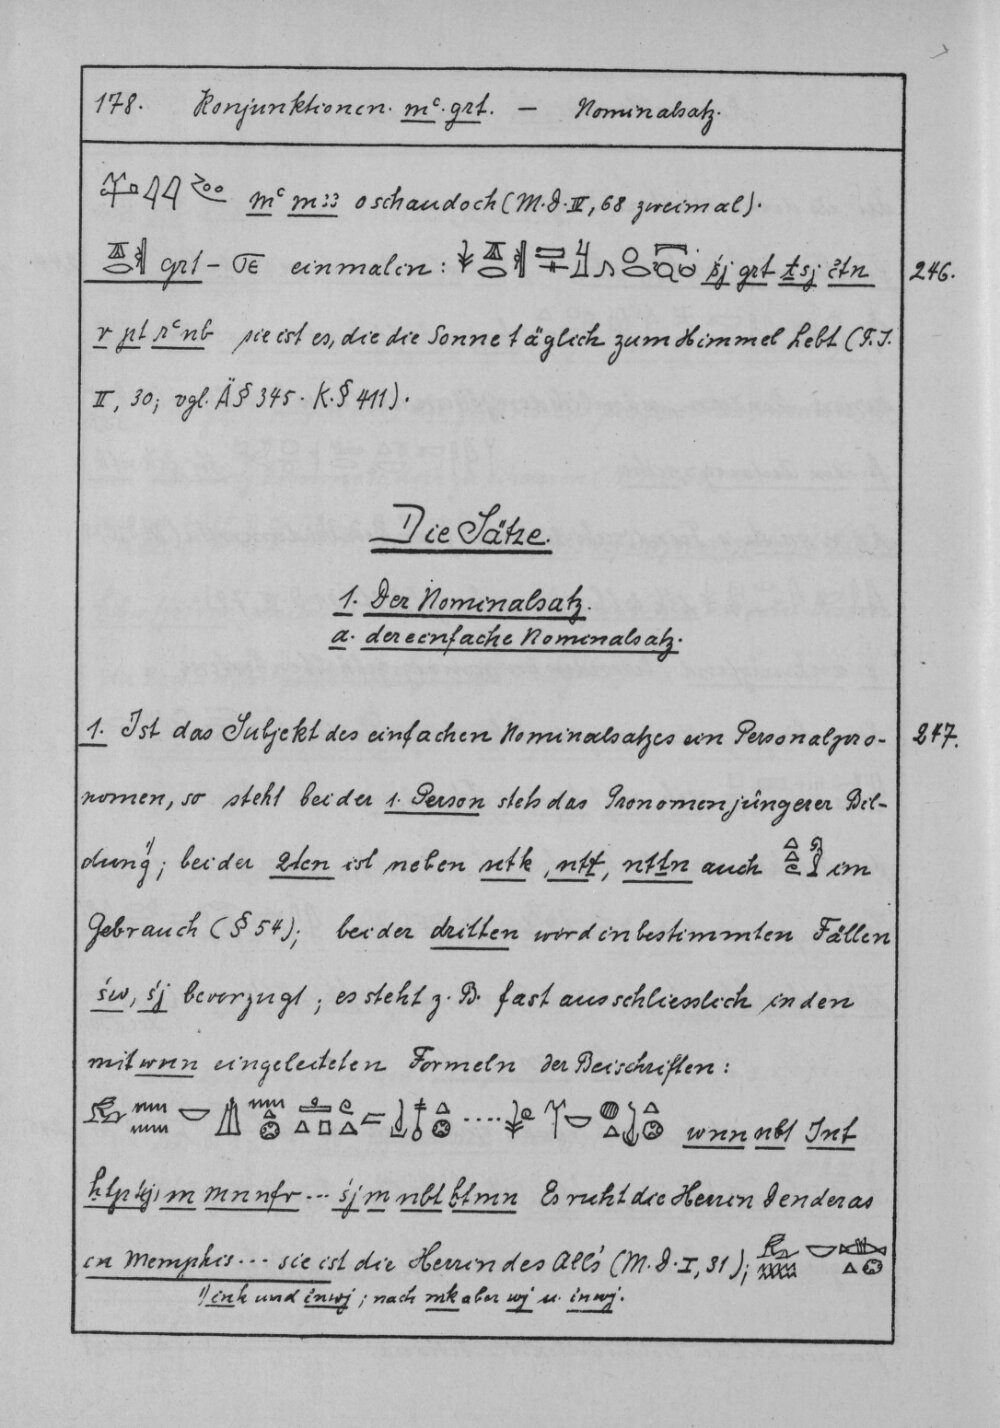 178. Konjunktionen. mꜥ. grt. — Nominalsatz.
mꜥ m33 o schau doch (M.D. IV, 68 zweimal).
grt – ϬΕ einmalen: śj grt ṯsj itn 246.
r pt rꜥ nb sie ist es, die die Sonne täglich zum Himmel hebt (T.I.
II, 30; vgl. Ä § 345. K. § 411).
Die Sätze.
1. Der Nominalsatz.
a. der einfache Nomenalsatz.
1. Ist das Subjekt des einfachen Nominalsatzes ein Personalpro- 247.
nomen, so steht bei der 1. Person stets das Pronomen jüngerer Bil-
dung¹⁾; bei der 2ten ist neben ntk, ntṯ, ntṯn auch im
Gebrauch (§ 54); bei der dritten wird in bestimmten Fällen
św, śj bevorzugt; es steht z. B. fast ausschliesslich in den
mit wnn eingeleiteten Formeln der Beischriften:
wnn nbt Int
ḥtptj m mn nfr ... śj m nbt tmn Es ruht die Herrin Denderas
in Memphis ... sie ist die Herrin des All's (M.D. I, 31);
¹⁾ ink und inwj; nach mk aber wj u. inwj.